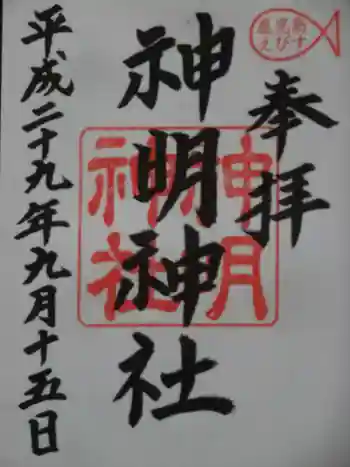 鹿児島
えびす
奉拝
神明神社
神明
神社
平成二十九年九月十五日